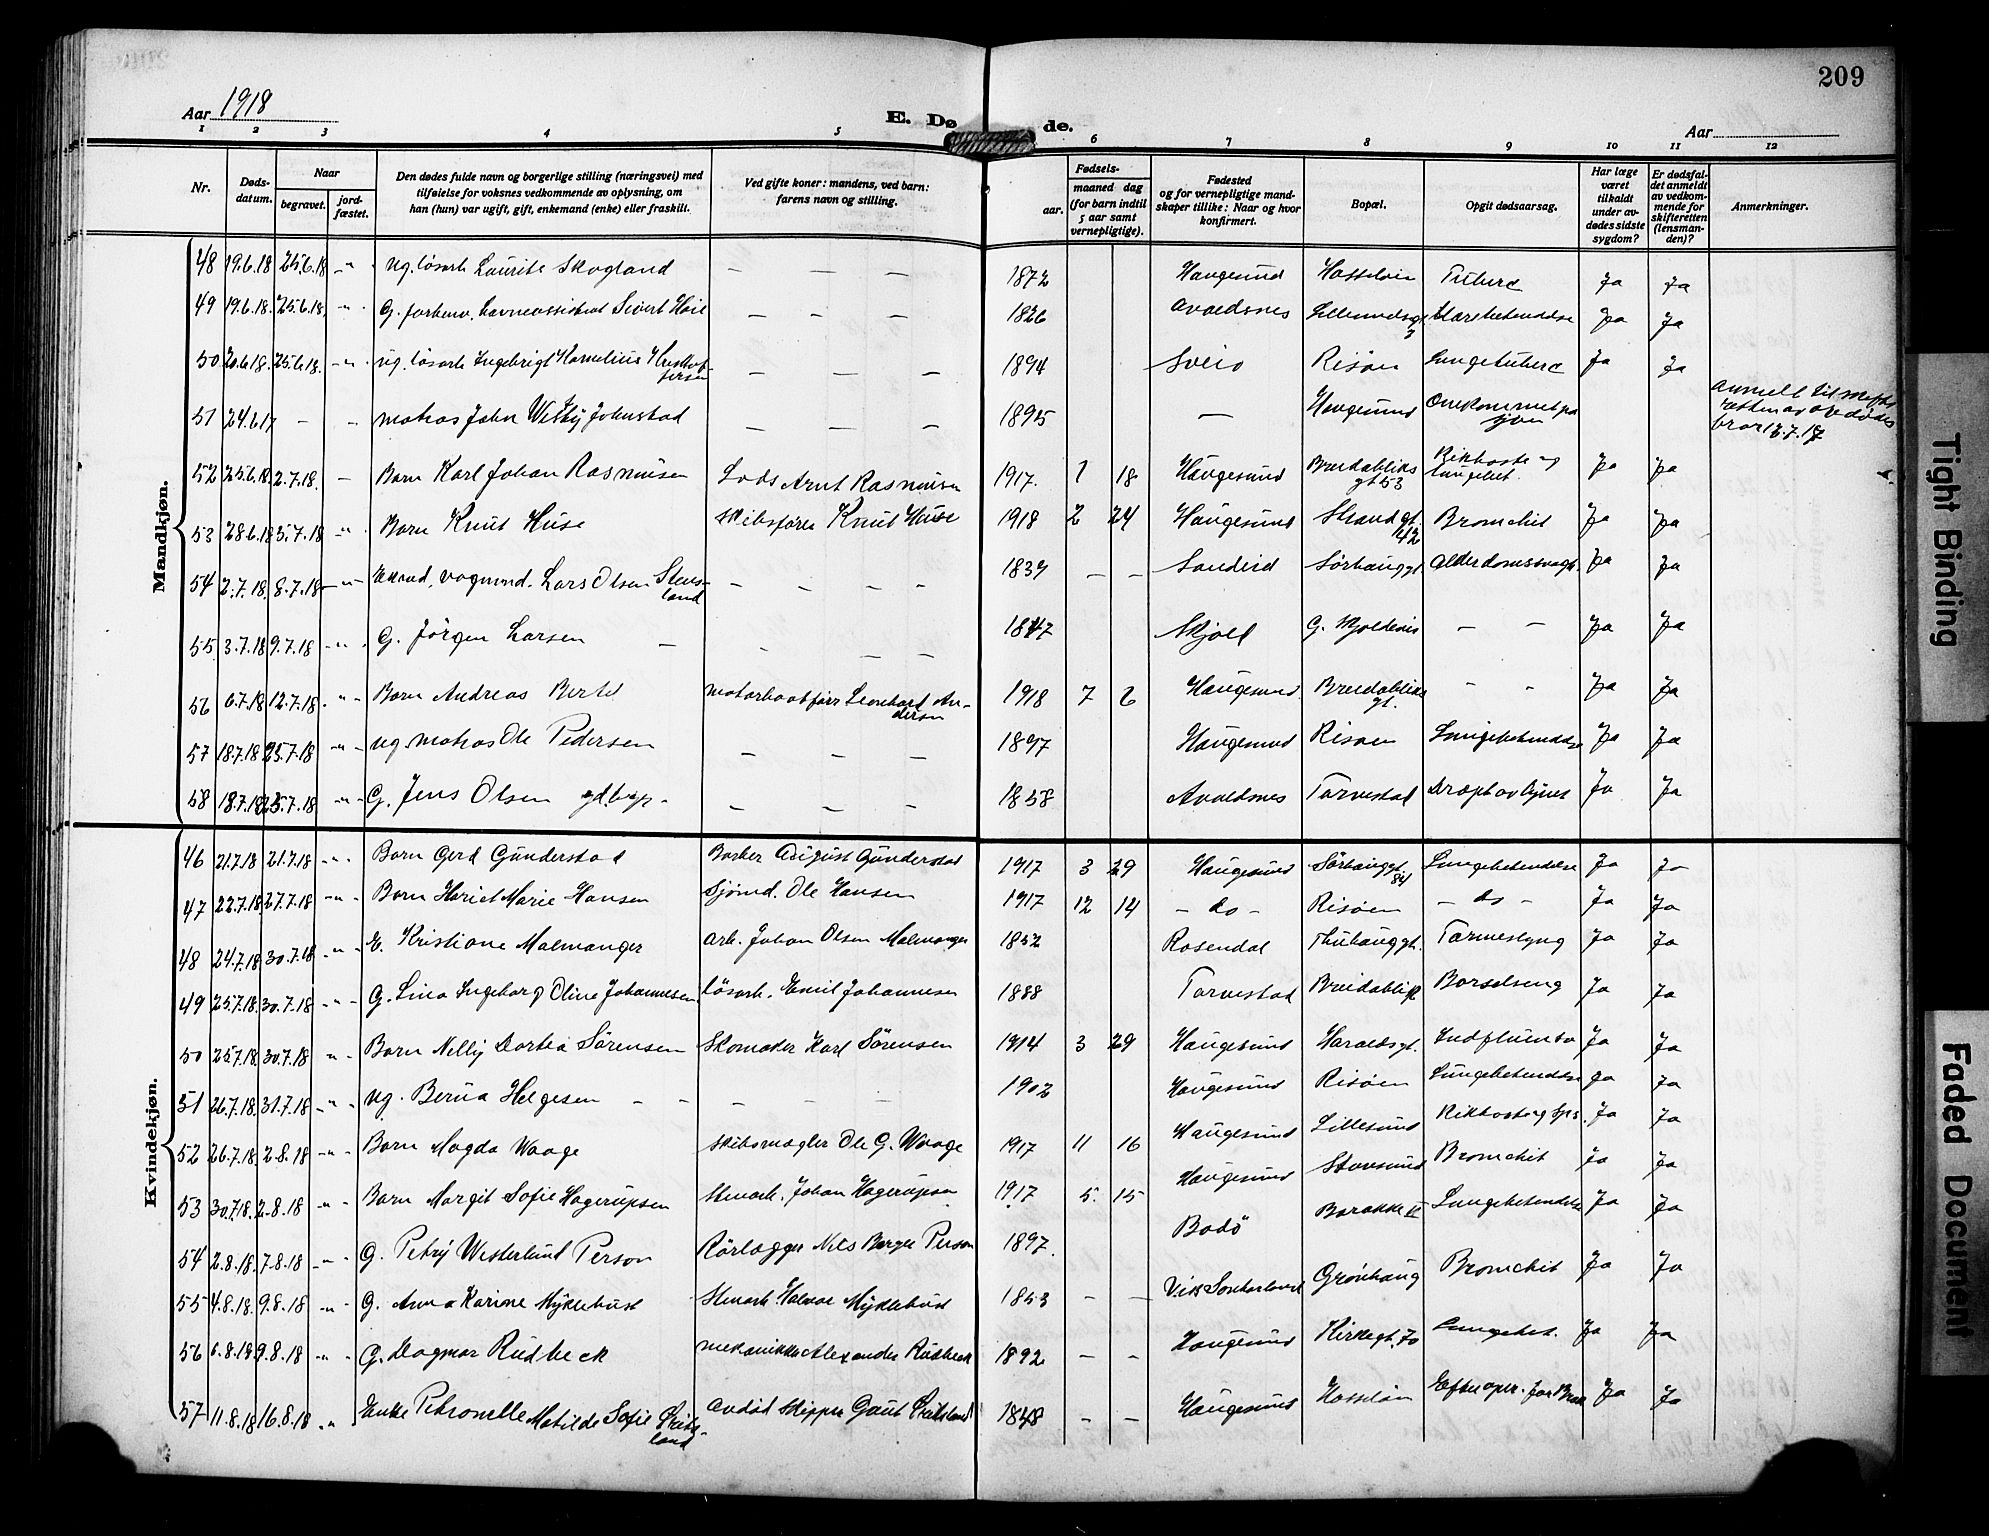 209
Aar 1918
E. Dø de.
Aar
1 2 3 4 5 6 7 8 9 10 11 12
Nr.
Døds-
datum.
Naar
begravet.
jord-
fæstet.
Den dødes fulde navn og borgerlige stilling (næringsvei) med
tilføielse for voksnes vedkommende av oplysning, om
han (hun) var ugift, gift, enkemand (enke) eller fraskilt.
Ved gifte koner: mandens, ved barn:
farens navn og stilling.
Fødsels-
aar.
maaned dag
(for barn indtil
5 aar samt
vernepligtige).
Fødested
og for vernepligtige mand-
skaper tillike: Naar og hvor
konfirmert.
Bopæl.
Opgit dødsaarsag.
Har læge
været
tilkaldt
under av-
dødes sidste
sygdom?
Er dødsfal-
det anmeldt
av vedkom-
mende for
skifteretten
(lensman-
den)?
Anmerkninger.
Mandkjøn.
48 19.6.18 25.6.18 -"- ug. løsarb Laurits Skogland — — — 1872 Haugesund Hasseløen Tuberc Ja Ja
49 19.6.18. 25.6.18. -"- G. forhenv. havneassistent Sivert — — — 1826 Avaldsnes Ja Ja
50 20.6.18. 25.6.18. -"- ug. løsarb Ingebrigt Kornelius Kristof-
fersen — — — 1894 Sveio Risøen Lungetuberc Ja Ja
51 24.6.17 - - matros John Johnstad — — — 1895 — Haugesund Omkommet paa
sjøen
52 25.6.18. 2.7.18. - Barn Karl Johan Rasmusen Lods Arnt Rasmusen 1917. 1 18 Haugesund Breidabliks
gt 53 Kikhoste og
lungebet. Ja Ja
53 28.6.18 5.7.18 -"- Barn Knut Huse Skibsfører Knut Huse 1918 2 24 Haugesund Strandgt.
142 Bronchit Ja Ja
54 2.7.18. 8.7.18 -"- Lars Olsen Stens-
land - - - - 1839 - - Sandeid Sørhauggt. Alderdomssvagh. Ja Ja
55 3.7.18 9.7.18 -"- G. Jörgen Larsen — - — — 1847 Skjold — — Ja Ja
56 6.7.18 12.7.18. -"- Barn Andreas Bertel motorbaatfører Leonhard An-
dersen 1918 7 6 Haugesund Breidabliks
gt. - - Ja Ja
57 18.7.18 25.7.18 -"- ug. matros Ole Pedersen — — — 1897 Haugesund Risøen Lungebetændelse Ja Ja
58 18.7.18 25.7.18 -"- G. Jens Olsen — — — 1858 Avaldsnes Torvestad Dræpt av lynet Ja Ja
Kvindekjøn.
46 21.7.18 21.7.18 -"- Barn Gerd Gunderstad August Gunderstad 1917 3 29 Haugesund Sørhauggt.
84 Lungebetændelse Ja Ja
47 22.7.18 27.7.18 -"- Barn Hariet Marie Hansen Sjømd. Ole Hansen 1917 12 14 - do - Risøen - do - Ja Ja
48 24.7.18 30.7.18 -"- E. Kristiane Malmanger arb. Johan Olsen Malmanger 1852 Rosendal Thuhauggt. Tarmeslyng Ja Ja
49 25.7.18. 30.7.18 -"- G. Lina Ingeborg Oline Johannesen løsarb. Emil Johannesen 1888 Torvestad Breidablik Barselseng Ja Ja
50 25.7.18. 30.7.18 " Barn Nelly Dortea Sörensen Skomaker Karl Sörensen 1914 3 29 Haugesund Haraldsgt. Indfluensa Ja Ja
51 26.7.18. 31.7.18 -"- ug. Berna Helgesen - - - - - 1902 Haugesund Risøen Lungebetændelse Ja Ja
52 26.7.18. 2.8.18 -"- Barn Magda Waage Skibsmægler Ole G. Waage 1917 11 16 Haugesund Lillesund Ja Ja
53 30.7.18. 2.8.18 -"- Barn Margit Sofie Hagerupsen Stenarb. Johan Hagerupsen 1917 5. 15 Haugesund Bronchit Ja Ja
54 2.8.18. 7.8.18 -"- G. Petry Westerlund Person Rörlægger Nils Person 1897. Bodö Barakke II Lungebetændelse Ja Ja
55 4.8.18. 9.8.18 -"- G. Anna Karine Myklebust Stenarb. Halvor Myklebust 1853 - - Grønhaug Bronchit Ja Ja
56 6.8.18 9.8.18 -"- G. Dagmar Rudbeck mekaniker Alexander Rudbeck 1892 - - Haugesund Kirkegt. 70 Lungebet. Ja Ja
57 11.8.18 16.8.18 -"- Enke Petronelle Matilde Sofie avdød skipper 1848 - - Haugesund Hasseløen Efter oper. for Brok Ja Ja
Tight Binding
Faded Document